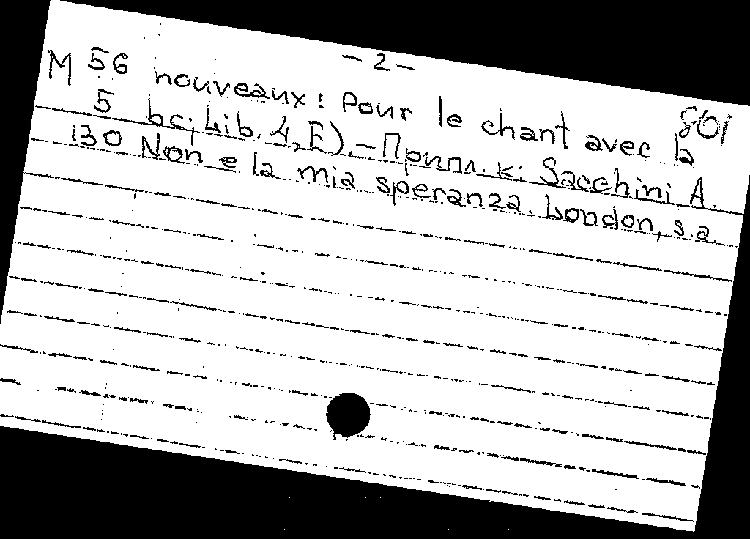 - 2 -
801
M 56 nouveaux: Pour le chant avec la
5 bc; Lib. 4, E). - Прилл. к: Sacchini A.
130 Non e la mia speranza. London, s.a.